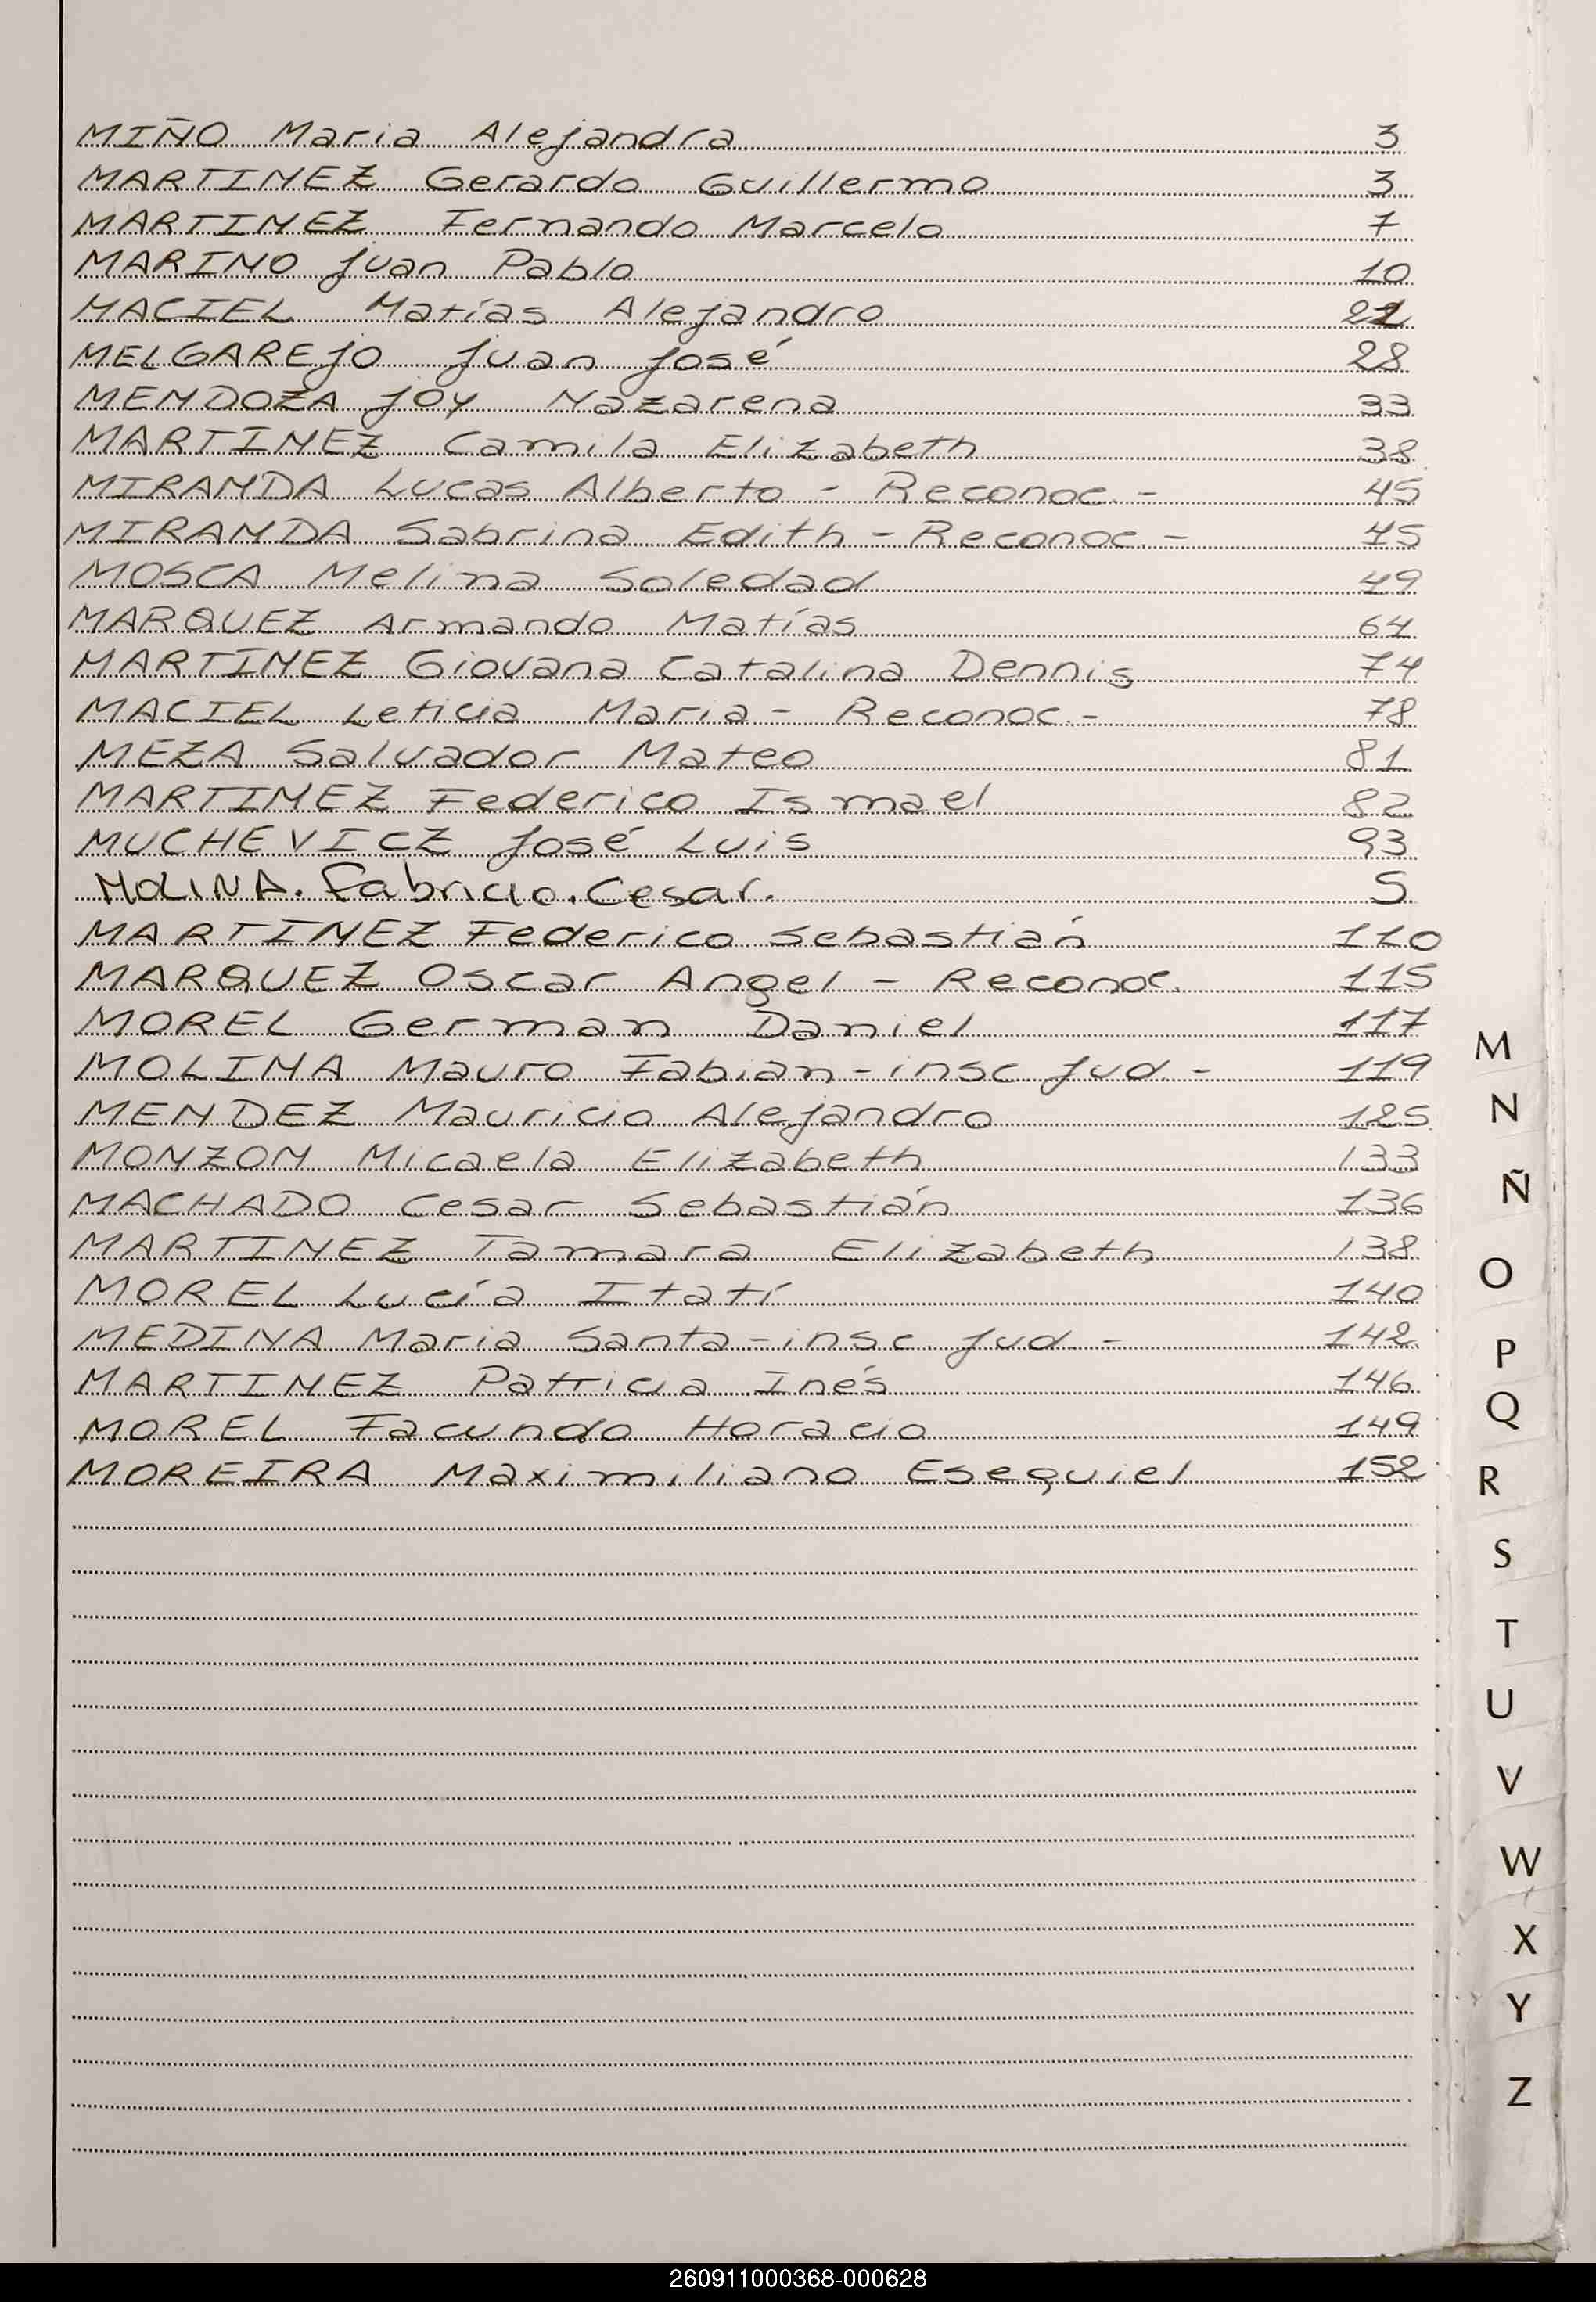 MIÑO Maria Alejandra 3
MARTINEZ Gerardo Guillermo 3
MARTINEZ Fernando Marcelo 7
MARINO Juan Pablo 10
MACIEL Matías Alejandro 21
MELGAREJO Juan José 28
MENDOZA Joy Nazarena 33
MARTINEZ Camila Elizabeth 38
MIRANDA Lucas Alberto - Reconoc. - 45
MIRANDA Sabrina Edith - Reconoc. - 45
MOSCA Melina Soledad 49
MARQUEZ Armando Matías 64
MARTINEZ Giovana Catalina Dennis 74
MACIEL Leticia Maria - Reconoc. - 78
MEZA Salvador Mateo 81
MARTINEZ Federico Ismael 82
MUCHEVICZ José Luis 93
MOLINA. Fabricio. Cesar. 5
MARTINEZ Federico Sebastián 110
MARQUEZ Oscar Angel - Reconoc. 115
MOREL German Daniel 117
MOLINA Mauro Fabian - insc. Jud. - 119
MENDEZ Mauricio Alejandro 125
MONZON Micaela Elizabeth 133
MACHADO Cesar Sebastián 136
MARTINEZ Tamara Elizabeth 138
MOREL Lucía Itatí 140
MEDINA Maria Santa - insc. Jud. - 142
MARTINEZ Patricia Inés 146
MOREL Facundo Horacio 149
MOREIRA Maximiliano Esequiel 152
M
N
Ñ
O
P
Q
R
S
T
U
V
W
X
Y
Z
260911000368-000628